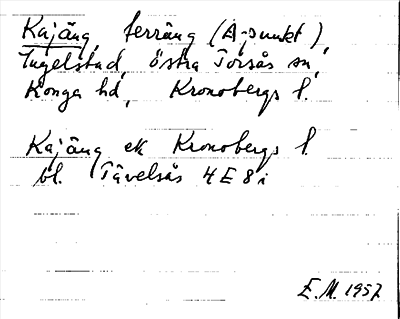 Kajäng, terräng (A-punkt),
Ingelstad, östra Torsås sn,
Konga hd, Kronobergs l.
Kajäng ek Kronobergs l.
bl. Tävelsås 4E8i
E.M. 1957